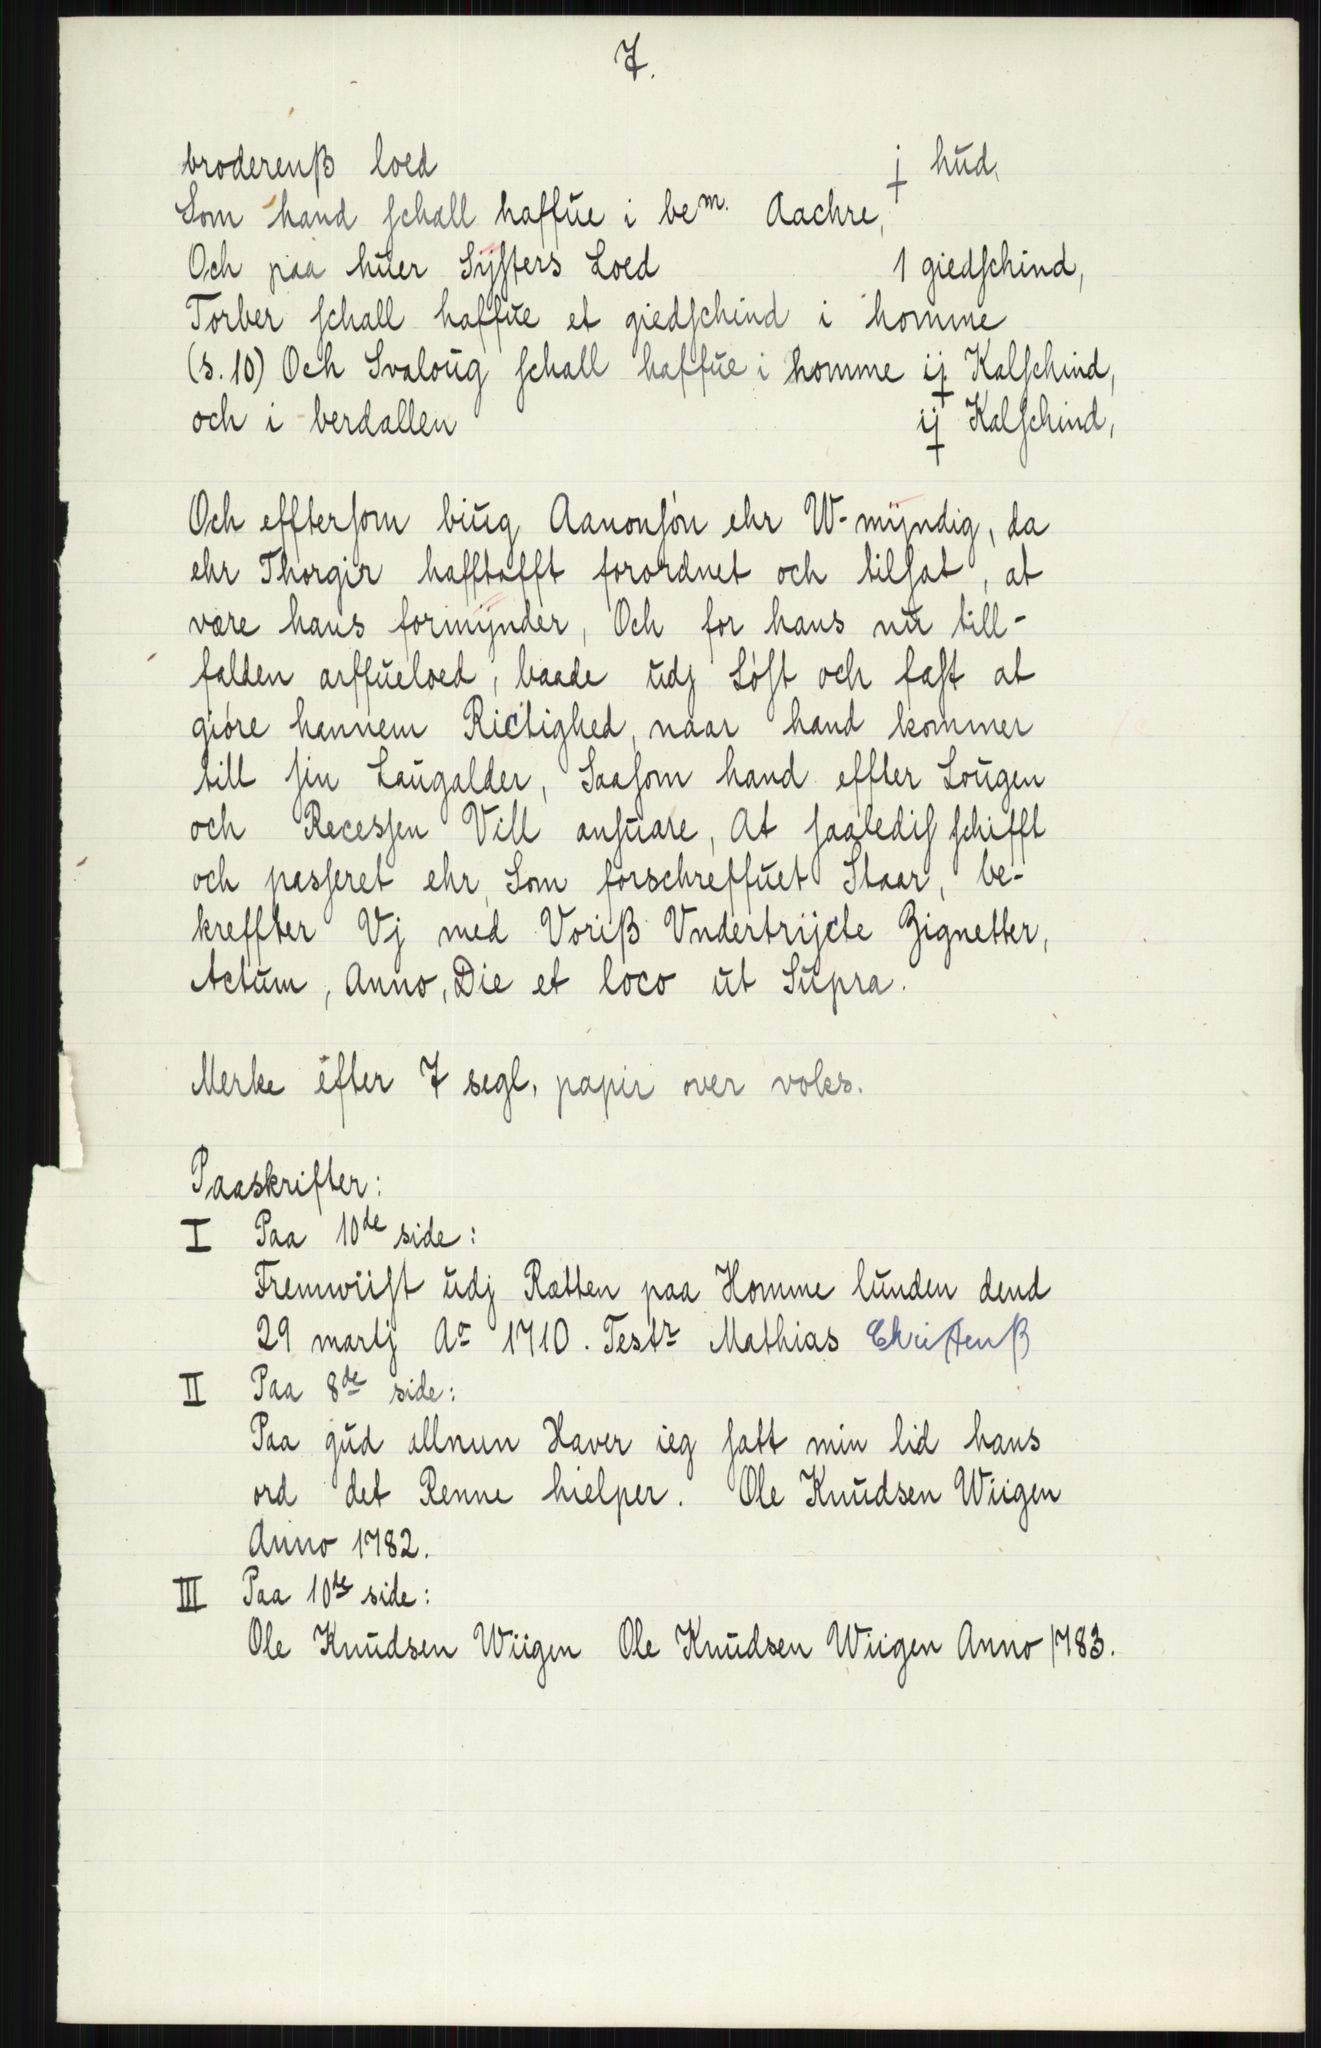 7.
broderenß loed j hud,
Som hand schall haffue i be m. Aachre,
Och paa huer Sÿsters Loed 1 giedschind,
Torber schall haffue et giedschind i homme
(s. 10) Och Svaloug schall haffue i homme ij Kalschind,
och i berdallen ij Kalschind,
Och efftersom biug Aanonsón ehr W-mÿndig, da
ehr Thorgir hafftafft forordnet och tilsat, at
være hans formÿnder, Och for hans nu till-
falden arffueloed, baade udj Lóst och fast at
gióre hannem Rictighed, naar hand kommer
till sin Laugalder, Saasom hand effter Lougen
och Recessen Vill ansuare, At saaledis schifft
och passeret ehr, Som forschreffuet Staar, be-
kreffter Vj med Voriß Vndertrijcte Zignetter,
Actum, Anno, Die et loco ut Supra.
Merke efter 7 segl, papir over voks.
Paaskrifter:
I Paa 10de side:
Fremwiist udj Rætten paa Homme lunden dend
29 martj Ao 1710. Testr Mathias Christenß
II Paa 8de side:
Paa gud allnun Haver ieg satt min lid hans
ord det Renne hielper. Ole Knudsen Wiigen
Anno 1782.
III Paa 10de side:
Ole Knudsen Wiigen Ole Knudsen Wiigen Anno 1783.